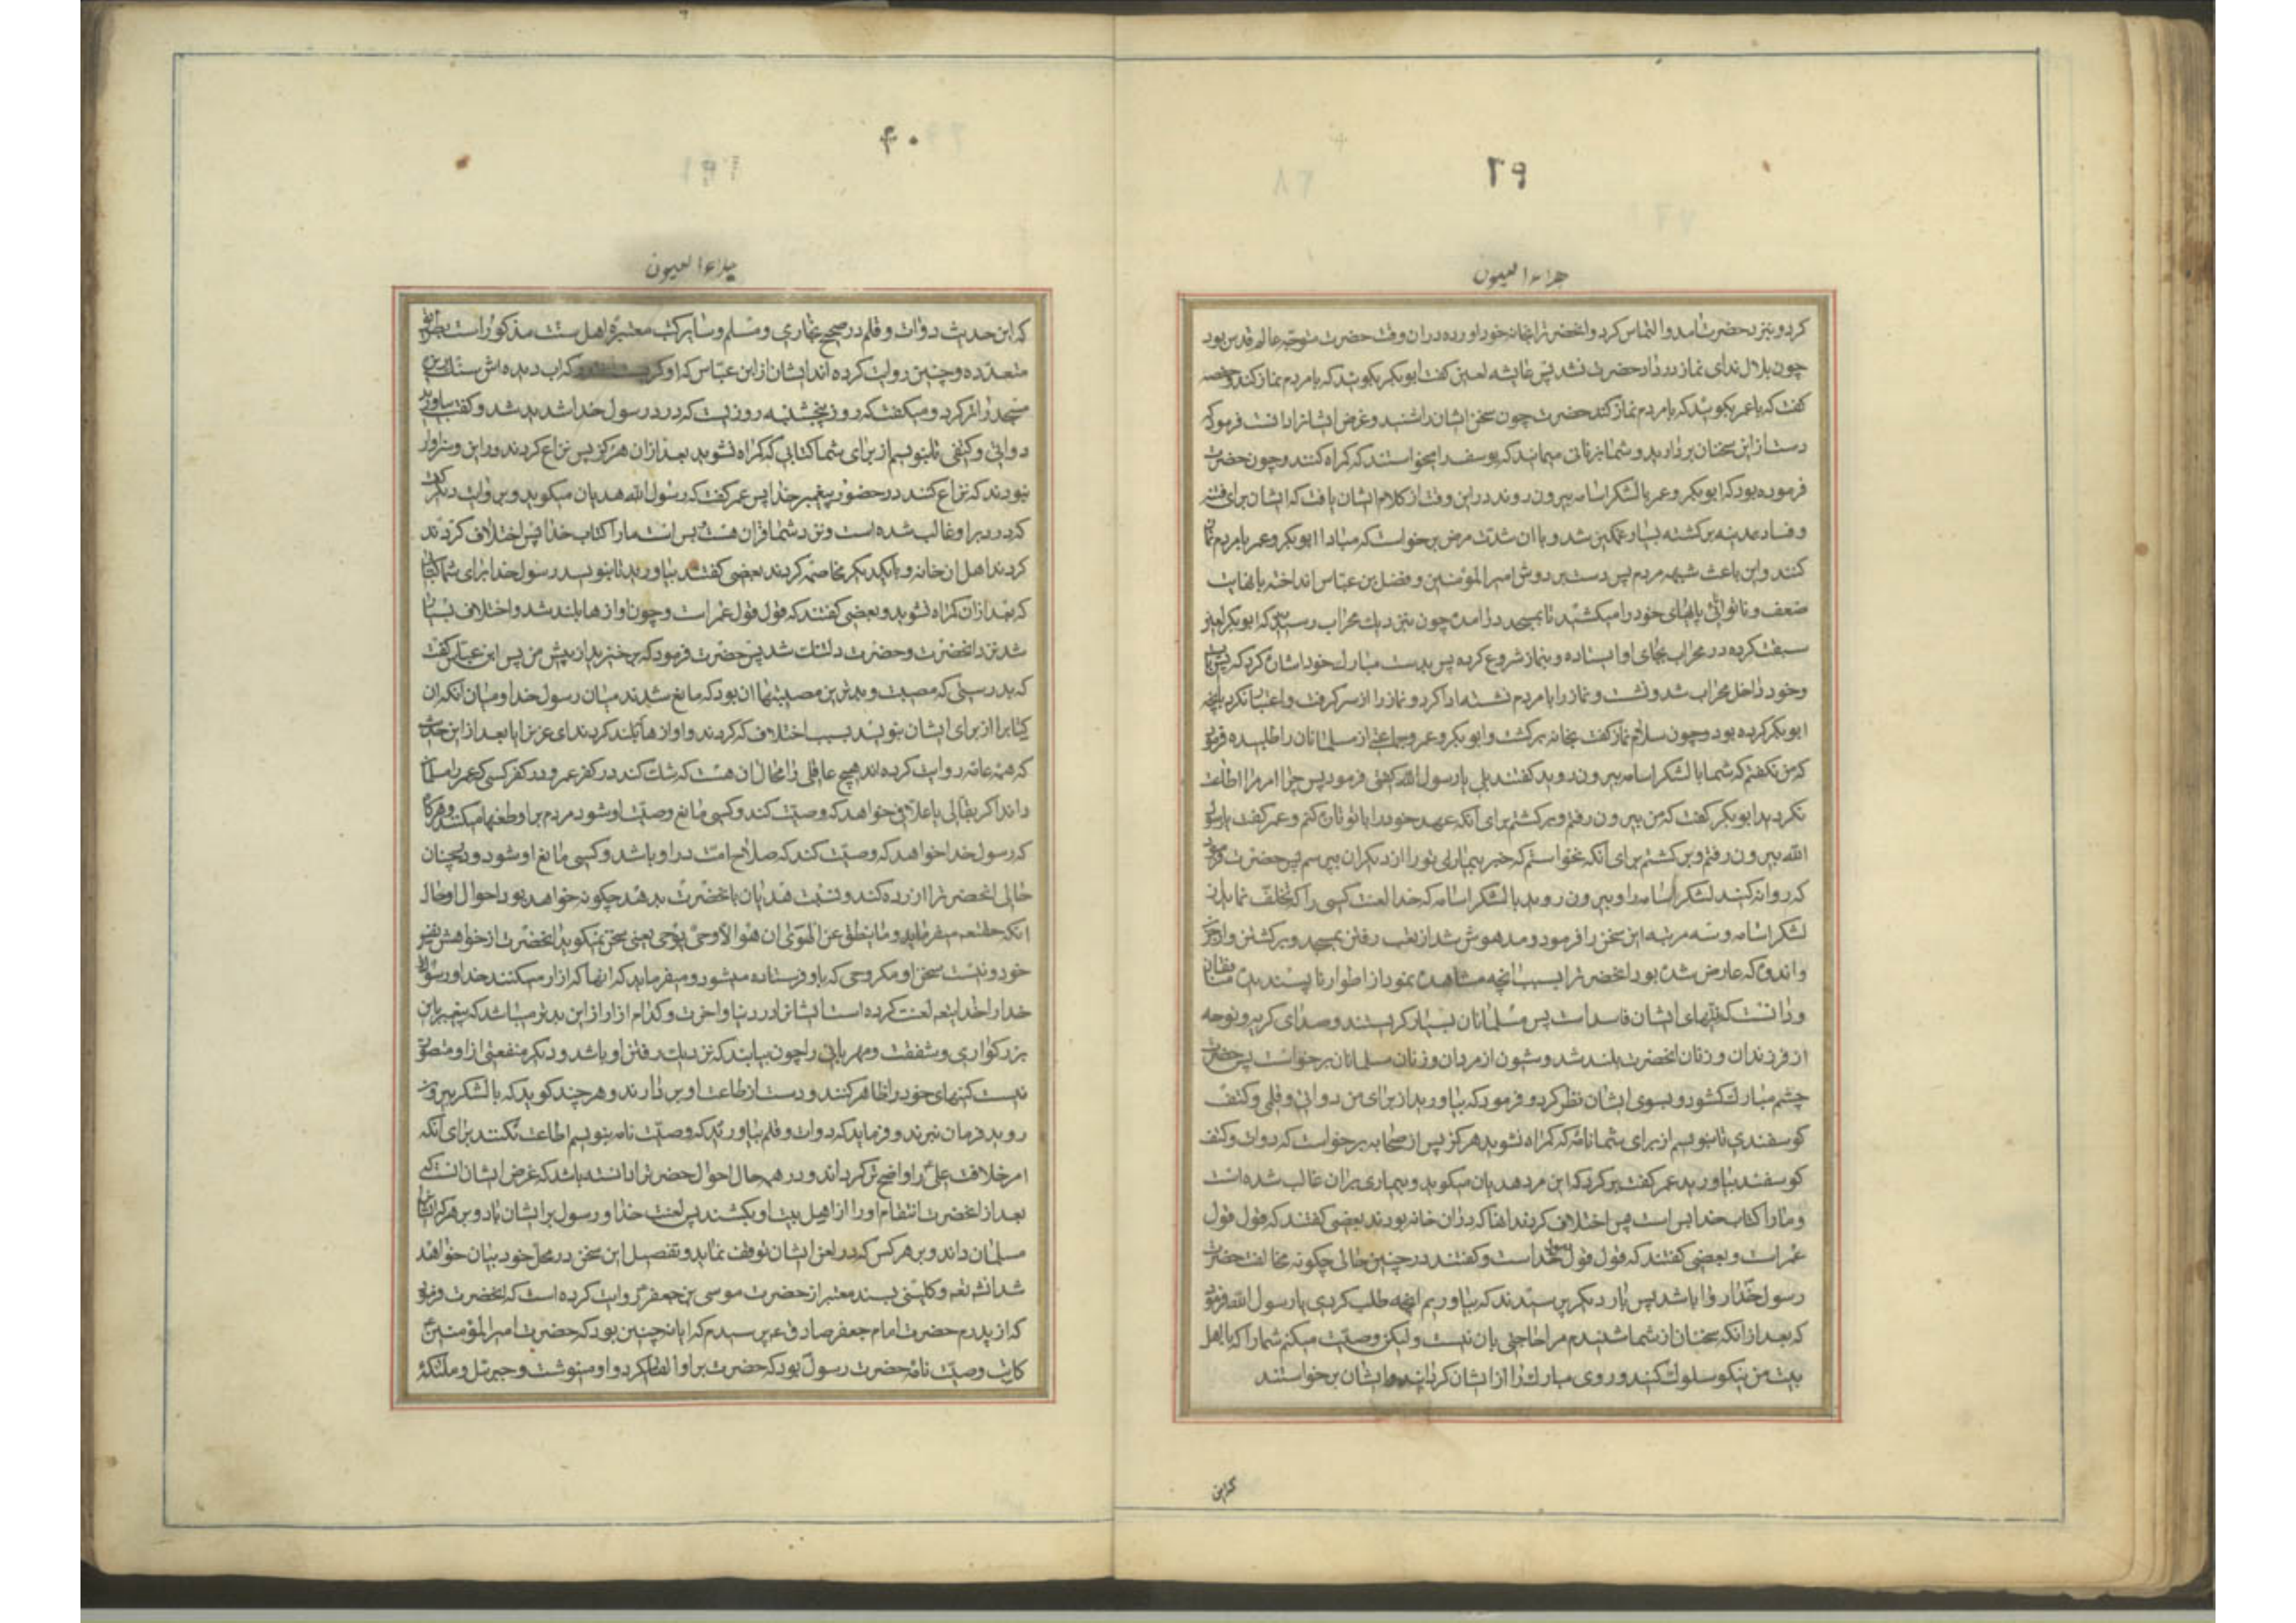 ۲۹
جلاء العیون
کرد و بنزد حضرت آمد و التماس کرد و آنحضرت را بخانه خود آورد و در آن وقت حضرت متوجه عالم قدس بود
چون بلال ندای نماز در داد حضرت نشد پس عایشه لعین گفت ابوبکر بگویند که با مردم نماز کند و حفصه
گفت که با عمر بگوئید که با مردم نماز کند حضرت چون سخن ایشان را شنید و غرض ایشانرا دانست فرمود که
دست از این سخنان بردارید و شما بزنانی میمانید که یوسف را میخواستند که گمراه کنند و چون حضرت
فرموده بود که ابوبکر و عمر با لشکر اسامه بیرون روند در این وقت از کلام ایشان یافت که ایشان برای فتنه
و فساد بمدینه برگشته بسیار غمگین شد و با آن شدت مرض برخواست که مبادا ابوبکر و عمر با مردم نماز
کنند و این باعث شبهه مردم پس دست بر دوش امیر المؤمنین و فضل بن عباس انداخته با نهایت
ضعف و ناتوانی پاهای خود را میکشید تا بمسجد در آمد چون بنزدیک محراب رسید که ابوبکر لعین
سبقت کرده در محراب بجای او ایستاده و بنماز شروع کرده پس بدست مبارک خود اشاره کرد که پس بایست
و خود داخل محراب شد و نشست و نماز را با مردم نشسته ادا کرد و نماز را از سر گرفت و اعتنا نکرد بآنچه
ابوبکر کرده بود و چون سلام نماز گفت بخانه برگشت و ابوبکر و عمر و جماعتی از مسلمانان را طلبیده فرمود
که من نگفتم که شما با لشکر اسامه بیرون روید گفتند بلی یا رسول الله گفتی فرمود پس چرا امر مرا اطاعت
نکردید ابوبکر گفت که من بیرون رفتم و برگشتم برای آنکه عهد خود را با تو تازه کنم و عمر گفت یا رسول
الله بیرون رفتم و برگشتم برای آنکه نخواستم که خبر بیماری تو را از دیگران بپرسم پس حضرت فرمود
که روانه کنید لشکر اسامه را و بیرون روید با لشکر اسامه که خدا لعنت کند کسی را که تخلف نماید از
لشکر اسامه و سه مرتبه این سخن را فرمود و مدهوش شد از تعب رفتن بمسجد و برگشتن و از حزن
و اندوهی که عارض شده بود آنحضرت را بسبب آنچه مشاهده نمود از اطوار ناپسندیده منافقان
و دانست که نیتهای ایشان فاسد است پس مسلمانان بسیار گریستند و صدای گریه و نوحه
از فرزندان و زنان آنحضرت بلند شد و شیون از مردان و زنان مسلمانان برخواست پس حضرت
چشم مبارک گشود و بسوی ایشان نظر کرد و فرمود که بیاورید از برای من دواتی و قلمی و کتف
گوسفندی تا بنویسم از برای شما نامه که گمراه نشوید هرگز پس از صحابه برخواست که دوات و کتف
گوسفند بیاورید عمر گفت برگرد که این مرد هذیان میگوید و بیماری بر آن غالب شده است
و ما را کتاب خدا بس است پس اختلاف کردند آنها که در آن خانه بودند بعضی گفتند که قول قول
عمر است و بعضی گفتند که قول قول رسول خداست و گفتند در چنین حالی چگونه مخالفت حضرت
رسول خدا روا باشد پس بار دیگر پرسیدند که بیاوریم آنچه طلب کردی یا رسول الله فرمود
که بعد از آنکه سخنان از شما شنیدم مرا حاجتی بآن نیست و لیکن وصیت میکنم شما را که با اهل
بیت من نیکو سلوک کنید و روی مبارک را از ایشان گردانید و ایشان برخواستند
که این
۴۰
جلاء العیون
که این حدیث دوات و قلم در صحیح بخاری و مسلم و سایر کتب معتبره اهل سنت مذکور است بطرق
متعدده و چنین روایت کرده اند ایشان از ابن عباس که او که آب دیده اش سنگ ریزه
مسجد را تر کرد و میگفت که روز پنجشنبه روزیست که درد رسول خدا شدید شد و گفت بیاورید
دواتی و کتفی تا بنویسم از برای شما کتابی که گمراه نشوید بعد از آن هرگز پس نزاع کردند در این و سزاوار
نبودند که نزاع کنند در حضور پیغمبر خدا پس عمر گفت که رسول الله هذیان میگوید و بروایت دیگر گفت
که درد بر او غالب شده است و نزد شما قرآن هست بس است ما را کتاب خدا پس اختلاف کردند
کردند اهل آن خانه و با یکدیگر مخاصمه کردند بعضی گفتند بیاورید تا بنویسد رسول خدا برای شما کتابی
که بعد از آن گمراه نشوید و بعضی گفتند که قول قول عمر است و چون آوازها بلند شد و اختلاف بسیار
شد نزد آنحضرت و حضرت دلتنگ شد پس حضرت فرمود که برخیزید از پیش من پس ابن عباس گفت
که بدرستی که مصیبت و بدترین مصیبتها آن بود که مانع شدند میان رسول خدا و میان آنکه آن
کتابرا از برای ایشان بنویسد بسبب اختلاف که کردند و آوازها بلند کردند ای عزیز آیا بعد از این حدیث
که همه عامه روایت کرده اند هیچ عاقلی را مجال آن هست که شک کند در کفر عمر و در کفر کسی که عمر را مسلمان
داند اگر بقالی یا علافی خواهد که وصیت کند و کسی مانع وصیت او شود مردم بر او طعنها میکنند هرگاه
که رسول خدا خواهد که وصیت کند که صلاح امت در او باشد و کسی مانع او شود و در چنان
حالی آنحضرت را آزرده کند و نسبت هذیان بآنحضرت بدهد چگونه خواهد بود احوال او و حال
آنکه حقتعالی میفرماید و ما ینطق عن الهوی ان هو الا وحی یوحی یعنی سخن نمیگوید آنحضرت از خواهش نفس
خود و نیست سخن او مگر وحی که باو فرستاده میشود و میفرماید که آنها که آزار میکنند خدا و رسول
خدا را خدا لعنت کرده است ایشانرا در دنیا و آخرت و کدام آزار از این بدتر میباشد که پیغمبر باین
بزرگواری و شفقت و مهربانی را چون بیابند که نزدیک رفتن او باشد و دیگر منفعتی از او متصور
نیست کینهای خود را ظاهر کنند و دست از طاعت او بردارند و هر چند گوید که با لشکر بیرون
روید فرمان نبرند و فرماید که دوات و قلم بیاورید که وصیت نامه بنویسم اطاعت نکنند برای آنکه
امر خلافت علی را واضح تر گرداند و در همه حال احوال حضرت را دانسته باشد که غرض ایشان آنست که
بعد از آنحضرت انتقام او را از اهل بیت او بکشند پس لعنت خدا و رسول بر ایشان باد و بر هر که ایشانرا
مسلمان داند و بر هر کس که در لعن ایشان توقف نماید و تفصیل این سخن در محل خود بیان خواهد
شد انشاء الله و کلینی بسند معتبر از حضرت موسی بن جعفر روایت کرده است که آنحضرت فرمود
که از پدرم حضرت امام جعفر صادق ع پرسیدم که آیا نه چنین بود که حضرت امیر المؤمنین
کاتب وصیت نامه حضرت رسول بود که حضرت بر او القا میکرد و او مینوشت و جبرئیل و ملئکه